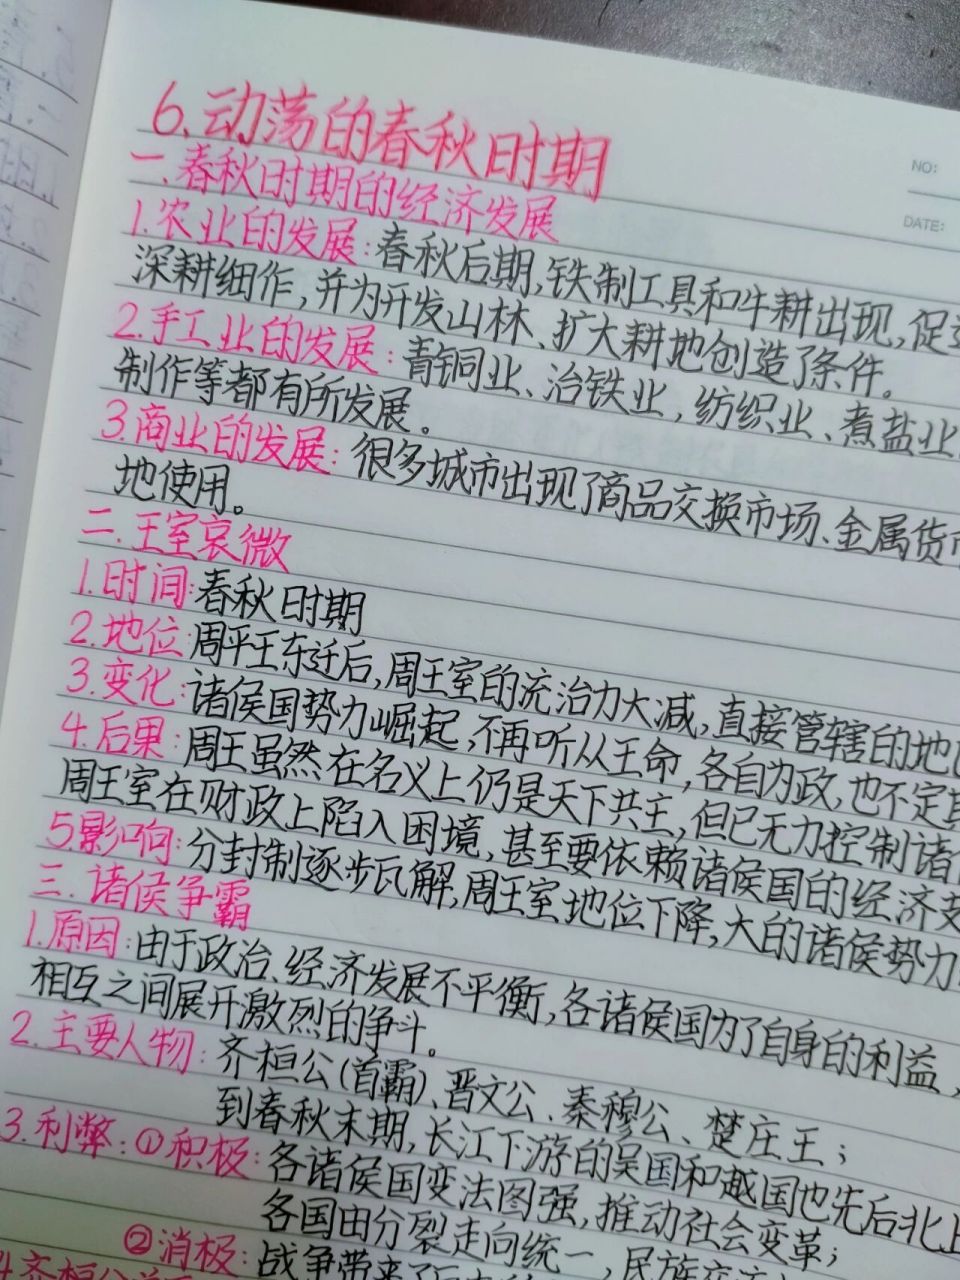 NO:
DATE:
6.动荡的春秋时期
一.春秋时期的经济发展
1.农业的发展:春秋后期,铁制工具和牛耕出现,促
深耕细作,并为开发山林、扩大耕地创造了条件。
2.手工业的发展:青铜业、冶铁业,纺织业、煮盐业
制作等都有所发展。
3.商业的发展:很多城市出现了商品交换市场、金属货
地使用。
二.王室衰微
1.时间:春秋时期
2.地位:周平王东迁后,周王室的统治力大减,直接管辖的地
3.变化:诸侯国势力崛起,不再听从王命,各自为政,也不定
4.后果:周王虽然在名义上仍是天下共主,但已无力控制诸
周王室在财政上陷入困境,甚至要依赖诸侯国的经济
5.影响:分封制逐步瓦解,周王室地位下降,大的诸侯势力
三.诸侯争霸
1.原因:由于政治、经济发展不平衡,各诸侯国为了自身的利益,
相互之间展开激烈的争斗。
2.主要人物:齐桓公(首霸)、晋文公、秦穆公、楚庄王;
到春秋末期,长江下游的吴国和越国也先后北上
3.利弊:①积极:各诸侯国变法图强,推动社会变革;
各国由分裂走向统一,民族交
②消极:战争带来了